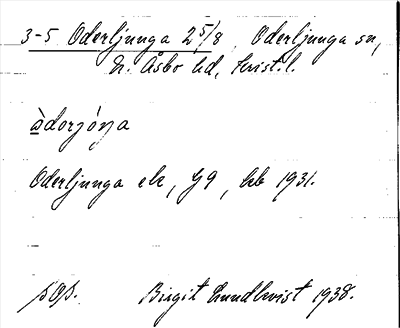 3-5 Oderljunga 2 5/8, Oderljunga sn,
N. Åsbo hd, Krist.l.
àdorjóŋa
Oderljunga ek, G9, hb 1931.
sOs. Birgit Lundkvist 1938.